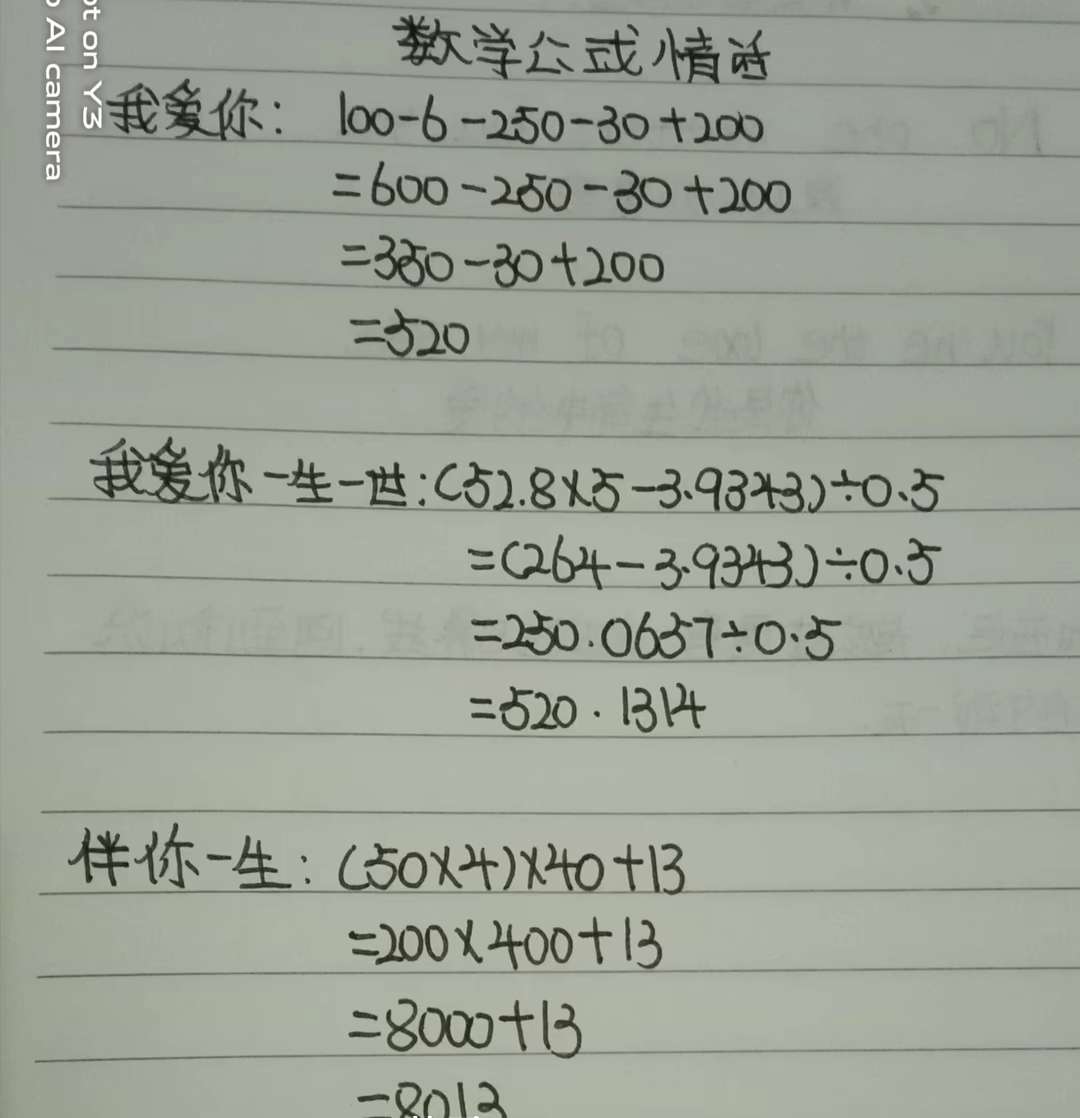 数学公式情话
我爱你: 100-6-250-30+200
=600-250-30+200
=350-30+200
=520
我爱你一生一世:(52.8×5-3.9343)÷0.5
=(264-3.9343)÷0.5
=250.0657÷0.5
=520.1314
伴你一生: (50×4)×40+13
=200×400+13
=8000+13
=8013
ot on Y3
AI camera